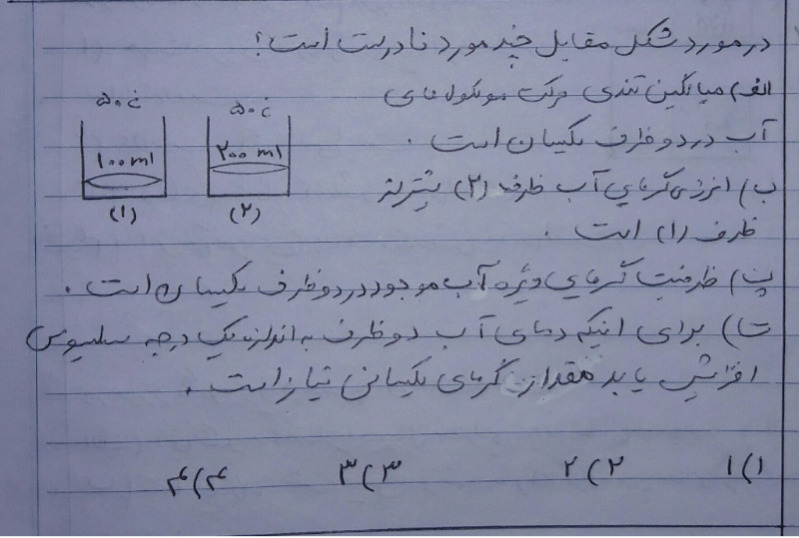 در مورد شکل مقابل چند مورد نادرست است؟
الف) میانگین تندی حرکت مولکول های
آب در دو ظرف یکسان است.
ب) انرژی گرمایی آب ظرف (۲) بیشتر از
ظرف (۱) است.
۵۰ċ
۵۰ċ
۱۰۰ml
۲۰۰ml
(۱)
(۲)
پ) ظرفیت گرمایی ویژه آب موجود در دو ظرف یکسان است.
ت) برای اینکه دمای آب دو ظرف به اندازه یک درجه سلسیوس
افزایش یابد مقدار گرمای یکسانی نیاز است.
۱) ۱
۲) ۲
۳) ۳
۴) ۴